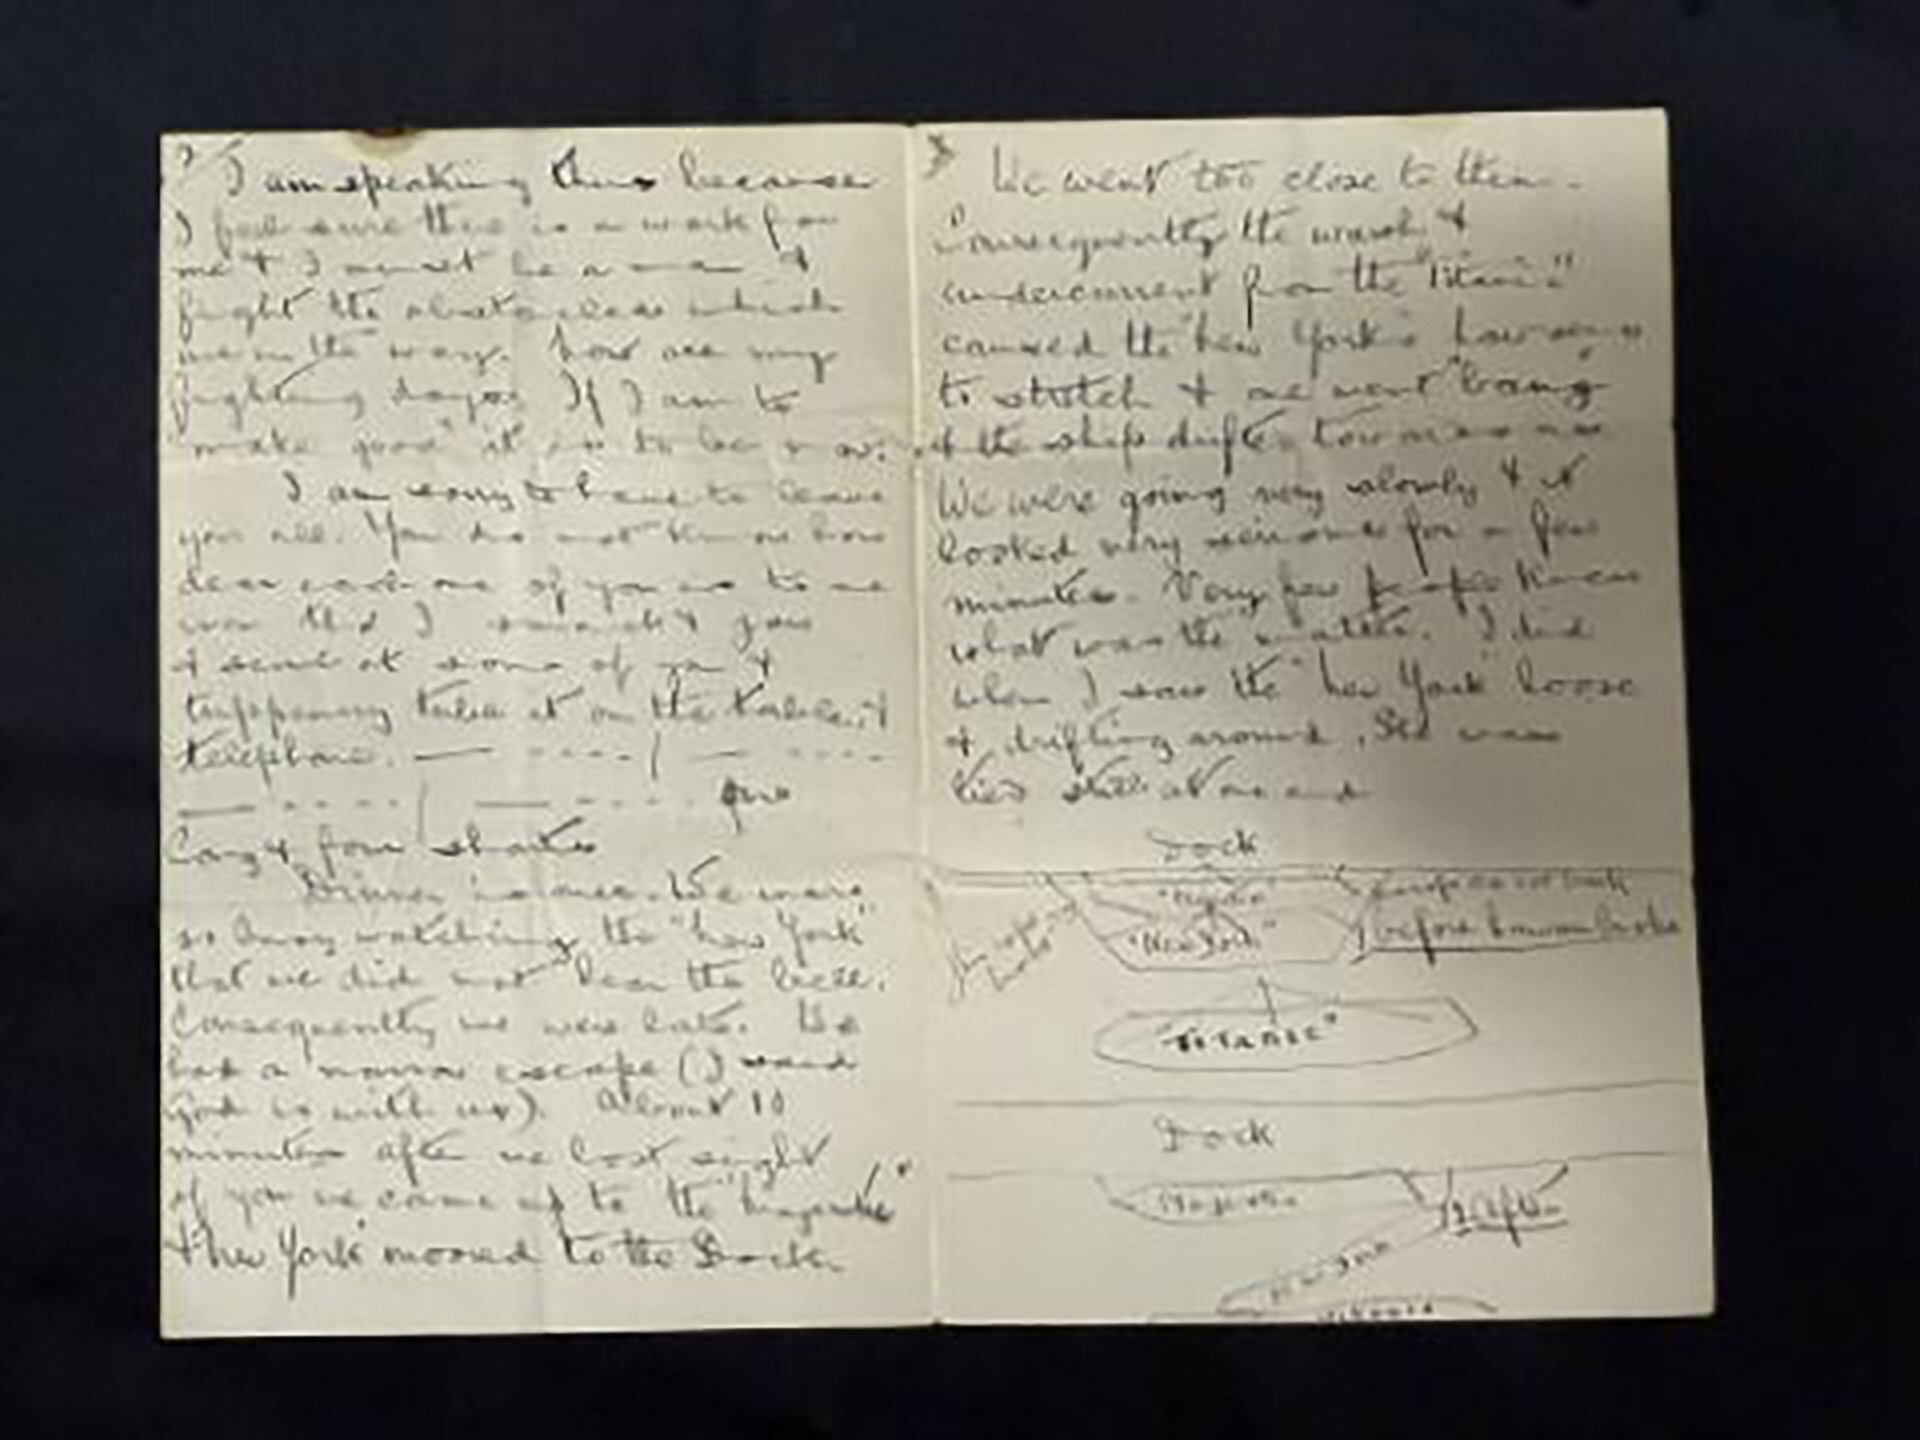 2 I am speaking thus because
I feel sure there is a work for
me & I must be a man &
fight the obstacles which
are in the way. Now are my
fighting days. If I am to
"make good" it is to be now.
I am sorry to have to leave
you all. You do not know how
dear each one of you is to me
&
& some of you &
on the table, &
telephone.
four
Dinner is over. We were
so busy watching the "New York"
that we did not hear the bell.
Consequently we were late. We
had a narrow escape (I said
God is with us). About 10
minutes after we lost sight
of you we came up to the "Majestic"
& "New York" moored to the Dock.
3 We went too close to them.
Consequently the wash &
undercurrent from the "Titanic"
caused the "New York's" hawsers
to stretch & one went "bang"
& the ship drifted towards us.
We were going very slowly & it
looked very serious for a few
minutes. Very few people knew
what was the matter. I did
when I saw the "New York" loose
& drifting around. She was
tied still at one end
Dock
"Majestic"
ropes
before hawser broke
"New York"
"TITANIC"
Dock
Majestic
New York
Titanic